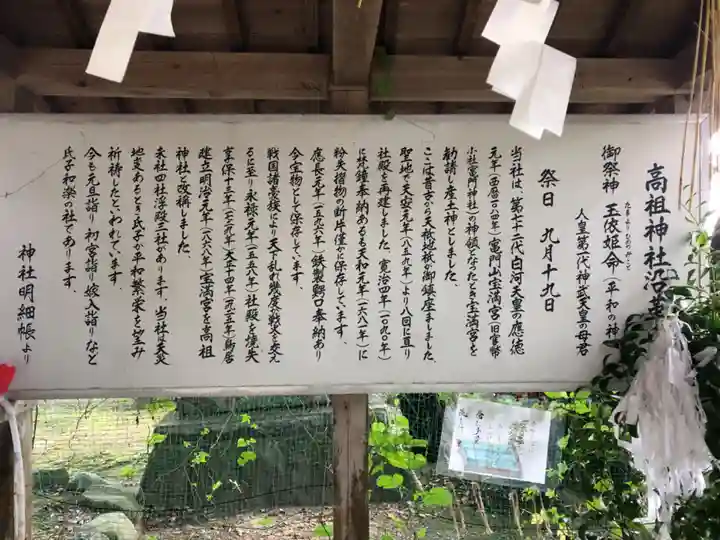 高祖神社沿革
御祭神 玉依姫命(平和の神
たまよりひめのみこと
人皇第一代神武天皇の母君
祭日 九月十九日
当社は、第七十二代白河天皇の應徳
元年(西暦一〇八四年)竈門山宝満宮(旧官幣
小社竈門神社)の神領となったとき宝満宮を
勧請し産土神としました。
ここは昔古から天神地祇が御鎮座しました
聖地で天安元年(八五九年)より八回に亘り
社殿を再建しました。寛治四年(一〇九〇年)
に梵鐘奉納あるも天和元年(一六八一年)に
紛失摺物の断片僅かに保存しています。
應長元年(一五九六年)鉄製鰐口奉納あり
今宝物として保存しています。
戦国諸党後により天下乱れ幾度か戦火を交え
るに至り永禄元年(一五五八年)社殿を焼失
享保十三年(一七二九年)大正十四年(一九二五年)鳥居
建立明治元年(一八六八年)宝満宮を高祖
神社と改稱しました。
末社四社浮殿三社あります。当社は天災
地変あるとき氏子が平和繁栄を望み
祈祷したといわれています。
今も元旦詣り初宮詣り、姣入詣りなど
氏子和楽の社であります。
神社明細帳より